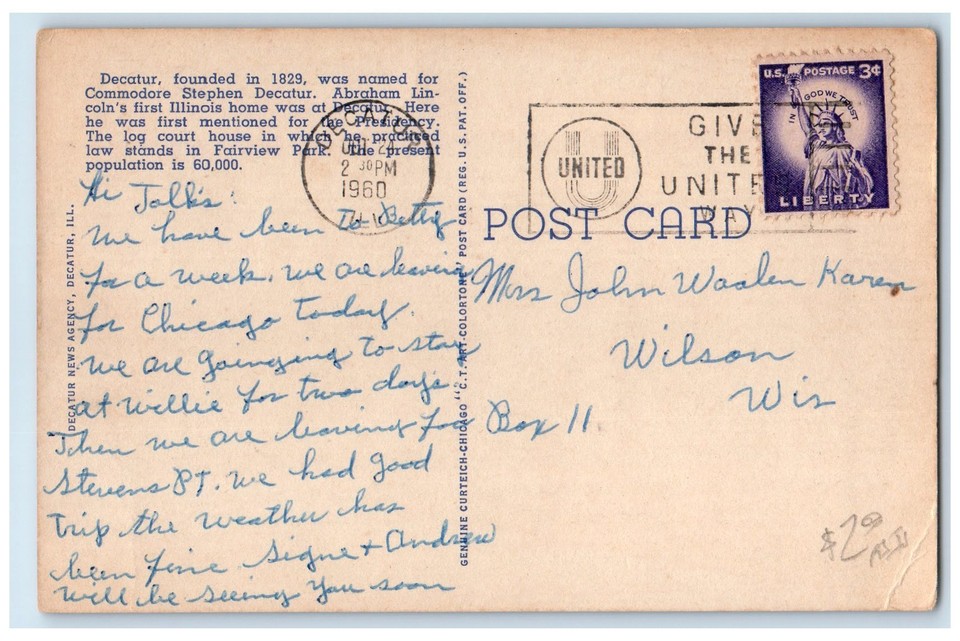 Decatur, founded in 1829, was named for
Commodore Stephen Decatur. Abraham Lin-
coln's first Illinois home was at Decatur. Here
he was first mentioned for the Presidency.
The log court house in which he practiced
law stands in Fairview Park. The present
population is 60,000.
DECATUR
OCT 24
2 30 PM
1960
ILL.
UNITED
GIVE
THE
UNITED
WAY
U.S. POSTAGE 3¢
IN GOD WE TRUST
LIBERTY
POST CARD
DECATUR NEWS AGENCY, DECATUR, ILL.
GENUINE CURTEICH-CHICAGO "C.T. ART-COLORTONE" POST CARD (REG. U.S. PAT. OFF.)
Hi Folks:
We have been to Betty
for a week. We are leaving
for Chicago today.
We are goinging to stay
at Willie for two days.
Then we are leaving for
Stevens PT. We had good
trip the weather has
been fine Signe + Andrew
will be seeing you soon
Mrs John Waalen Karen
Wilson
Wis
Box 11
$2